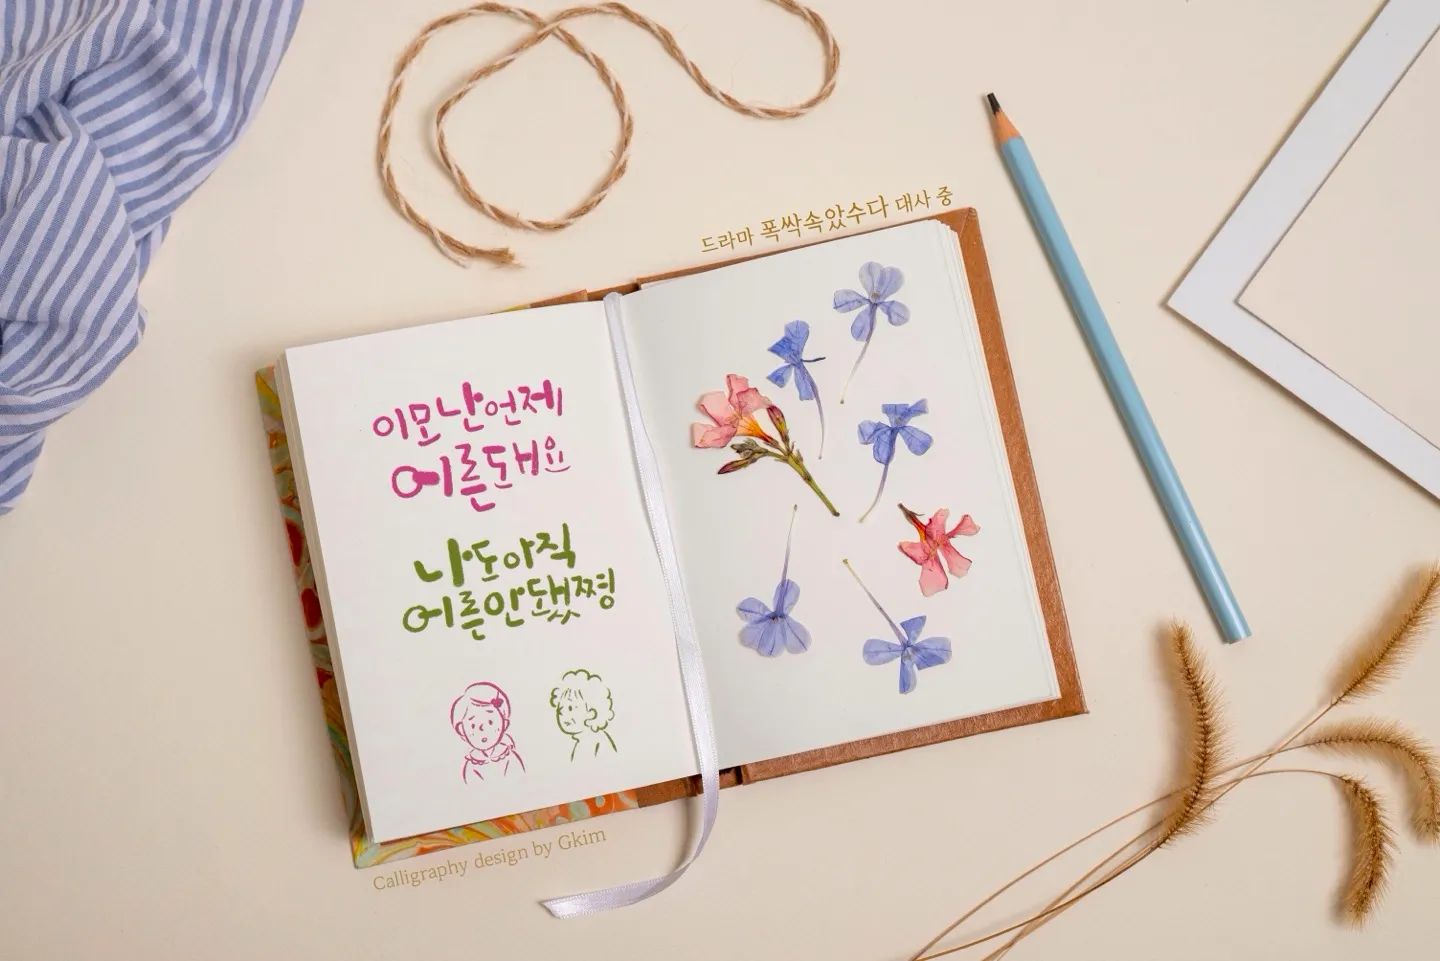 드라마 폭싹속았수다 대사 중
이모 난 언제
어른돼요
나도 아직
어른 안 됐쪙
Calligraphy design by Gkim